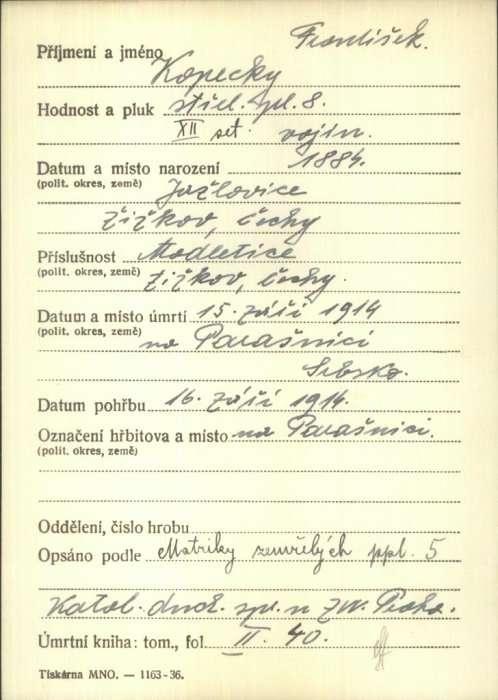 František.
Příjmení a jméno Kopecky
Hodnost a pluk střel. pl. 8.
XII set. vojín.
Datum a místo narození 1884.
(polit. okres, země) Jažlovice
Žižkov, Čechy
Příslušnost Modletice
(polit. okres, země) Žižkov, Čechy.
Datum a místo úmrtí 15. září 1914
(polit. okres, země) na Parašnici
Srbsko.
Datum pohřbu 16. září 1914.
Označení hřbitova a místo na Parašnici.
(polit. okres, země)
Oddělení, číslo hrobu
Opsáno podle Matriky zemřelých ppl. 5
Katol. duch. spr. n ZV. Praha.
Úmrtní kniha: tom., fol. II. 40.
Tiskárna MNO. — 1163-36.